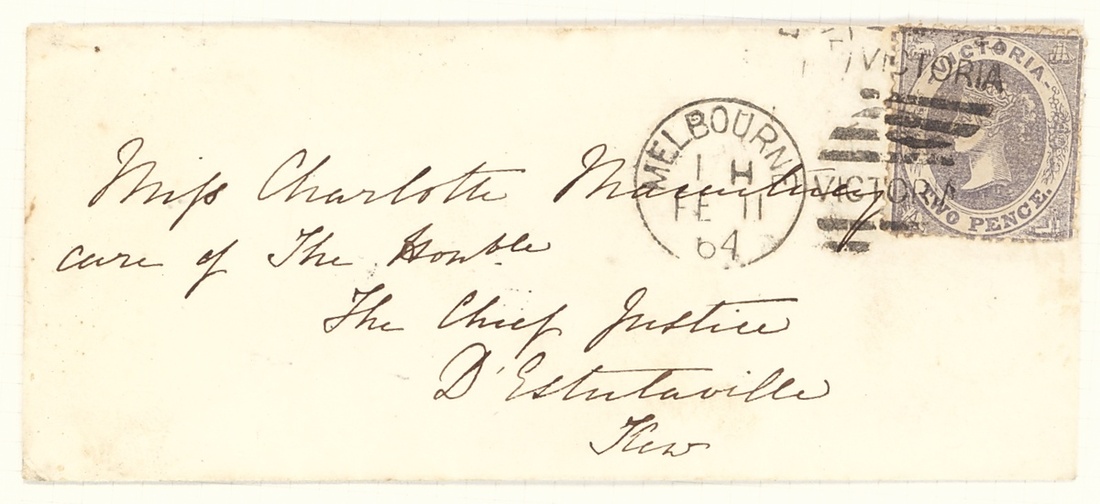 VICTORIA
VICTORIA
TWO PENCE.
MELBOURNE
1 H
FE 11
64
VICTORIA
Miss Charlotte
care of The Honble
The Chief Justice
D'Estutaville
Kew